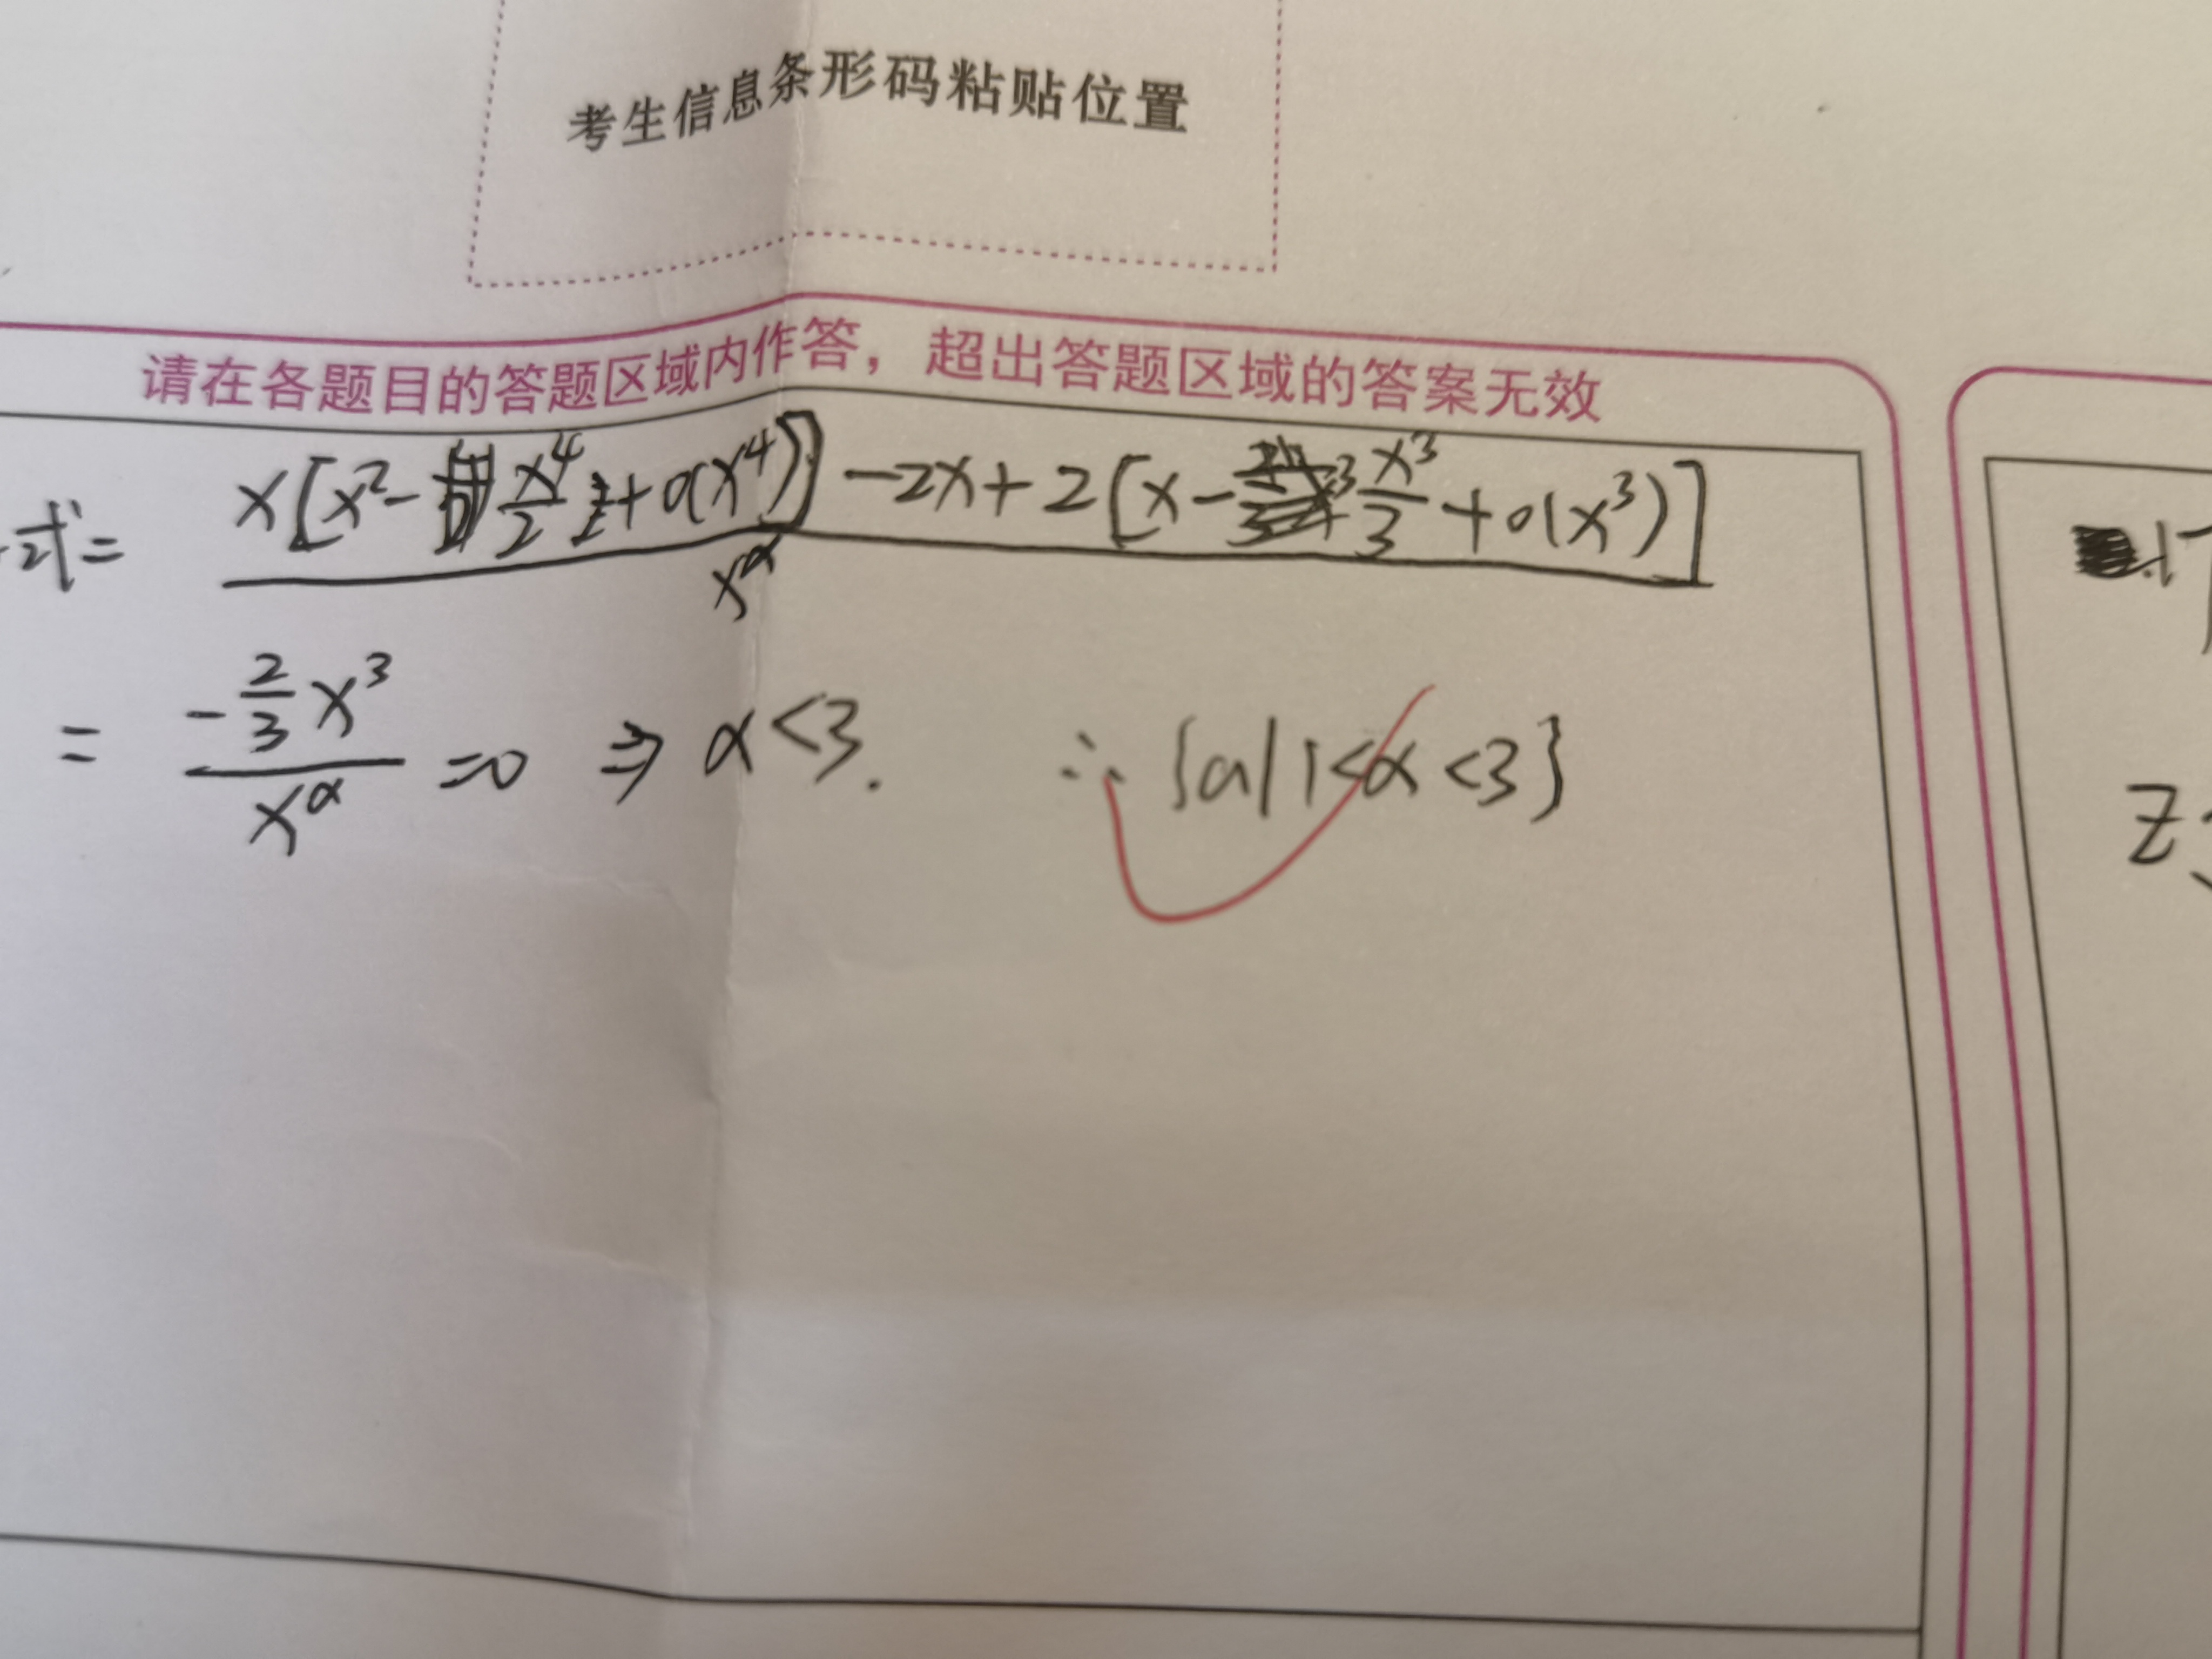 考生信息条形码粘贴位置
请在各题目的答题区域内作答，超出答题区域的答案无效
式= x[x²- x⁴/2 + o(x⁴)] -2x+2[x- x³/3 +o(x³)] / x^α
= -2/3 x³ / x^α =0 ⇒ α<3. ∴ {a|1<α<3}
Z